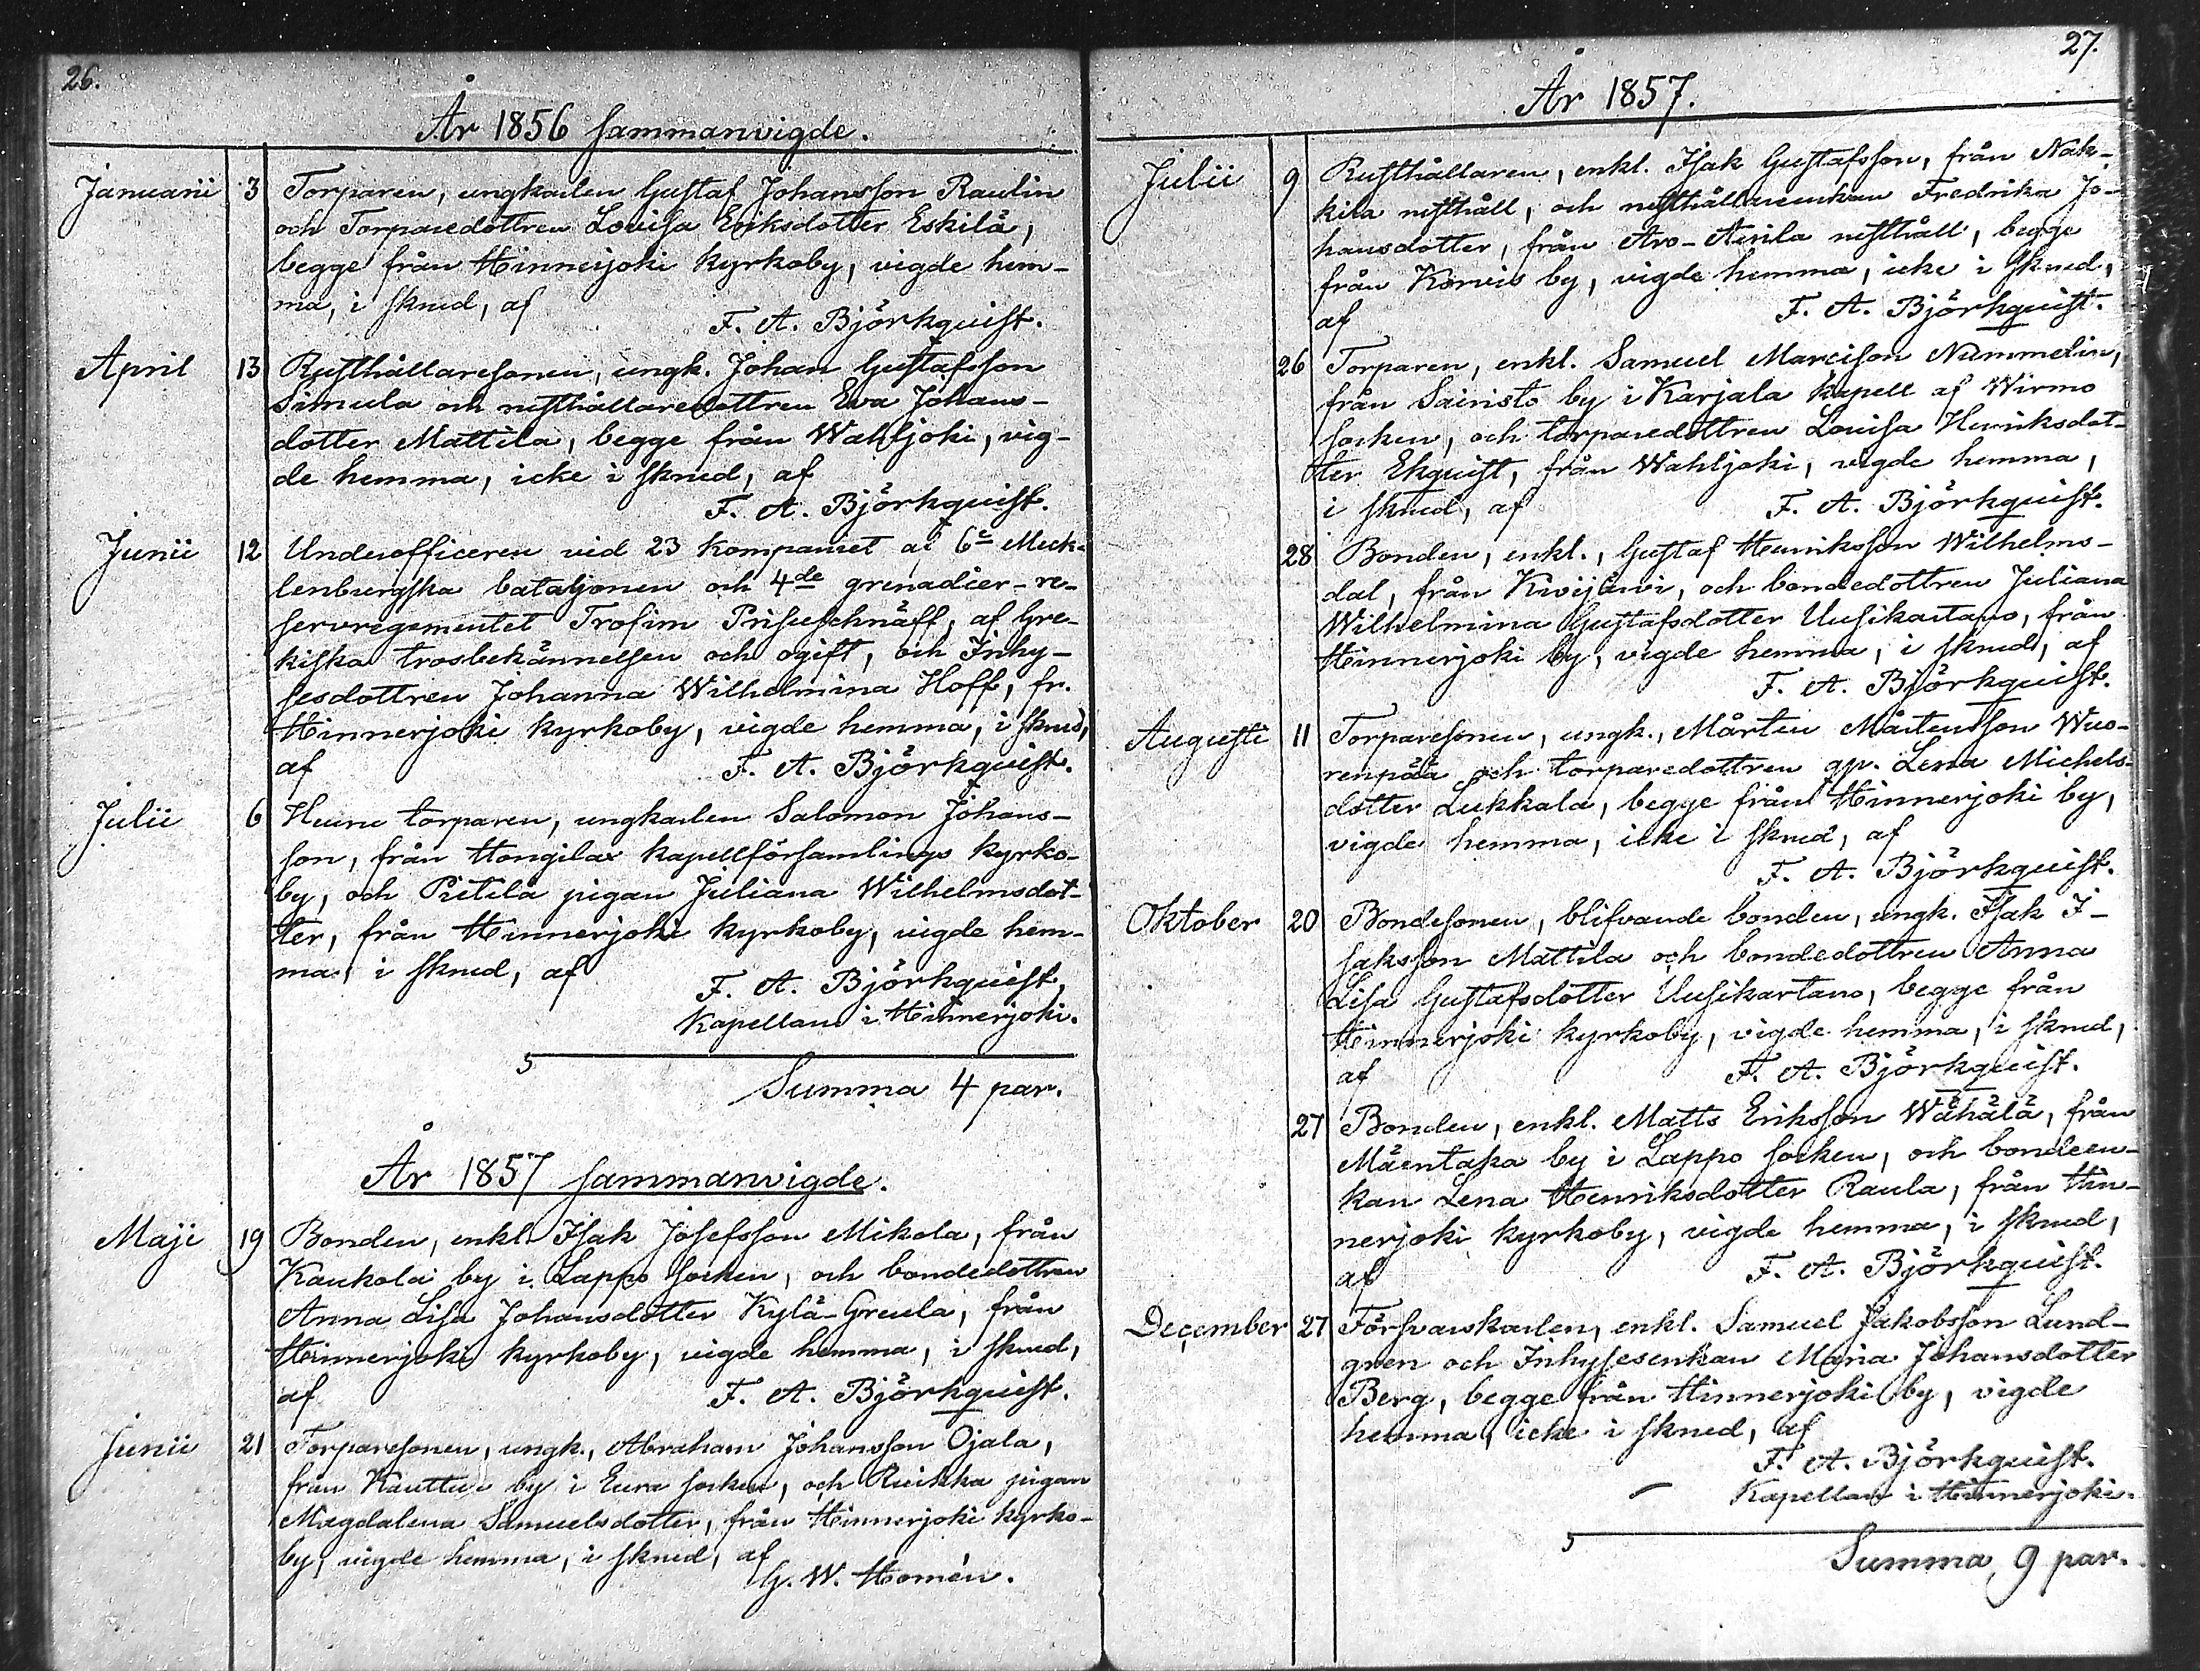 26.
År 1856 sammanvigde.
Januarii 3 Torparen, ungkarlen Gustaf Johansson Raulin
och Torparedottren Lovisa Eriksdotter Eskilä,
begge från Hinnerjoki kyrkoby, vigde hem-
ma, i skrud, af
F. A. Björkquist.
April 13 Rusthållaresonen, ungk. Johan Gustafsson
Simula och rusthållaredottren Eva Johans-
dotter Mattila, begge från Wahljoki, vig-
de hemma, icke i skrud, af
F. A. Björkquist.
Junii 12 Underofficeren vid 23 kompaniet af 6e Meck-
lenburgska bataljonen och 4de grenadier-re-
servregementet Trofim Prisuschnäff, af Gre-
kiska trosbekännelsen och ogift, och Inhy-
sesdottren Johanna Wilhelmina Hoff, fr.
Hinnerjoki kyrkoby, vigde hemma, i skrud,
af F. A. Björkquist.
Julii 6 torparen, ungkarlen Salomon Johans-
son, från Hongilax kapellförsamlings kyrko-
by, och Pietilä pigan Juliana Wilhelmsdot-
ter, från Hinnerjoki kyrkoby, vigde hem-
ma, i skrud, af
F. A. Björkquist,
Kapellan i Hinnerjoki.
5
Summa 4 par.
År 1857 sammanvigde.
Maji 19 Bonden, enkl. Isak Josefsson Mikola, från
Kaukola by i Lappo socken, och bondedottren
Anna Lisa Johansdotter Kylä-Greula, från
Hinnerjoki kyrkoby, vigde hemma, i skrud,
af F. A. Björkquist.
Junii 21 Torparesonen, ungk., Abraham Johansson Ojala,
från Kauttua by i Eura socken, och Ruikka pigan
Magdalena Samuelsdotter, från Hinnerjoki kyrko-
by, vigde hemma, i skrud, af
G. W. Homén.
27.
År 1857.
Julii 9 Rusthållaren, enkl. Isak Gustafsson, från Nak-
kila rusthåll, och rusthållareenkan Fredrika Jo-
hansdotter, från Aro- rusthåll, begge
från Korvis by, vigde hemma, icke i skrud,
af F. A. Björkquist.
26 Torparen, enkl. Samuel Marcisson Nummelin,
från Sairisto by i Karjala kapell af Wirmo
socken, och torparedottren Lovisa Henriksdot-
ter Ekquist, från Wahljoki, vigde hemma,
i skrud, af F. A. Björkquist.
28 Bonden, enkl., Gustaf Henriksson Wilhelms-
dal, från och bondedottren Juliana
Wilhelmina Gustafsdotter Uusikartano, från
Hinnerjoki by, vigde hemma, i skrud, af
F. A. Björkquist.
Augusti 11 Torparesonen, ungk., Mårten Mårtensson Wuo-
renpää och torparedottren qp. Lena Michels-
dotter Lukkala, begge från Hinnerjoki by,
vigde hemma, icke i skrud, af
F. A. Björkquist.
Oktober 20 Bondesonen, blifvande bonden, ungk. Isak I-
saksson Mattila och bondedottren Anna
Lisa Gustafsdotter Uusikartano, begge från
Hinnerjoki kyrkoby, vigde hemma, i skrud,
af F. A. Björkquist.
27 Bonden, enkl. Matts Eriksson Wähälä, från
Mäentaka by i Lappo socken, och bondeen-
kan Lena Henriksdotter Raula, från Hin-
nerjoki kyrkoby, vigde hemma, i skrud,
af F. A. Björkquist.
December 27 Försvarskarlen, enkl. Samuel Jakobsson Lund-
gren och Inhysesenkan Maria Johansdotter
Berg, begge från Hinnerjoki by, vigde
hemma, icke i skrud, af
F. A. Björkquist.
Kapellan i Hinnerjoki.
5
Summa 9 par.